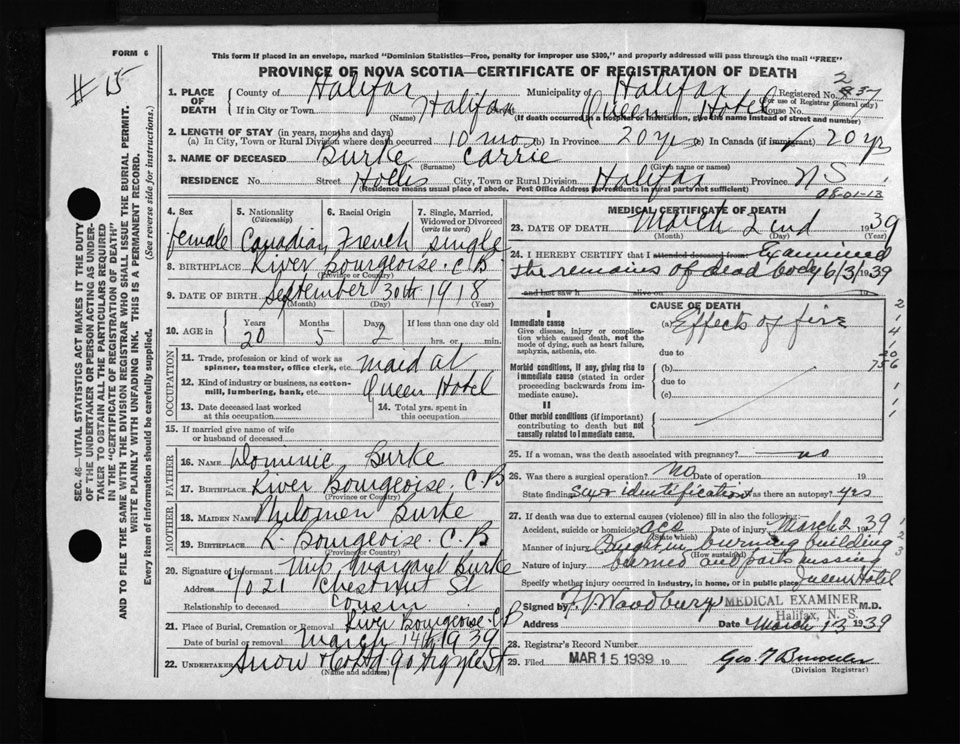 FORM 6
This form if placed in an envelope, marked "Dominion Statistics—Free, penalty for improper use $300," and properly addressed will pass through the mail "FREE"
# 15
PROVINCE OF NOVA SCOTIA—CERTIFICATE OF REGISTRATION OF DEATH
1. PLACE OF DEATH
County of Halifax Municipality of Halifax Registered No. 237
(For use of Registrar General only)
If in City or Town Halifax Queen Hotel House No.
(Name) (If death occurred in a hospital or institution, give the name instead of street and number)
2. LENGTH OF STAY (in years, months and days)
(a) In City, Town or Rural Division where death occurred 10 mo (b) In Province 20 yrs (c) In Canada (if immigrant) 20 yrs
3. NAME OF DECEASED Burke Carrie
(Surname) (Given name or names)
RESIDENCE No. Street Hollis City, Town or Rural Division Halifax Province N S
(Residence means usual place of abode. Post Office Address for residents in rural parts not sufficient)
08-01-13
4. Sex female
5. Nationality (Citizenship) Canadian
6. Racial Origin French
7. Single, Married, Widowed or Divorced (write the word) single
8. BIRTHPLACE River Bourgeoise. C B
(Province or Country)
9. DATE OF BIRTH September 30th 1918
(Month) (Day) (Year)
10. AGE in Years Months Days If less than one day old
20 5 2 hrs. or min.
OCCUPATION
11. Trade, profession or kind of work as spinner, teamster, office clerk, etc. maid at
12. Kind of industry or business, as cotton-mill, lumbering, bank, etc. Queen Hotel
13. Date deceased last worked at this occupation
14. Total yrs. spent in this occupation
15. If married give name of wife or husband of deceased
FATHER
16. NAME Dominic Burke
17. BIRTHPLACE River Bourgeoise. C. B
(Province or Country)
MOTHER
18. MAIDEN NAME Burke
19. BIRTHPLACE R. Bourgeoise. C. B
(Province or Country)
20. Signature of informant Mrs Margaret Burke
Address Chestnut St
Relationship to deceased cousin
21. Place of Burial, Cremation or Removal River Bourgeoise. C B
Date of burial or removal March 14th 1939
22. UNDERTAKER Snow & Co Ltd 90 Argyle St
(Name and address)
MEDICAL CERTIFICATE OF DEATH
23. DATE OF DEATH March 2nd 1939
(Month) (Day) (Year)
24. I HEREBY CERTIFY that I attended deceased from Examined
the remains of dead body 6/3/1939
and last saw h alive on 19
CAUSE OF DEATH
I
Immediate cause
Give disease, injury or complication which caused death, not the mode of dying, such as heart failure, asphyxia, asthenia, etc.
(a) Effects of fire
due to
Morbid conditions, if any, giving rise to immediate cause (stated in order proceeding backwards from immediate cause).
(b)
due to
(c)
II
Other morbid conditions (if important) contributing to death but not causally related to immediate cause.
25. If a woman, was the death associated with pregnancy? no
26. Was there a surgical operation? No Date of operation 19
State findings sex identification Was there an autopsy? yes
27. If death was due to external causes (violence) fill in also the following:
Accident, suicide or homicide? acc Date of injury March 2 1939
(State which)
Manner of injury Caught in burning building
(How sustained)
Nature of injury burned and parts missing
Specify whether injury occurred in industry, in home, or in public place Queen Hotel
Signed by Woodbury MEDICAL EXAMINER M.D.
Halifax, N. S.
Address Date March 13 1939
28. Registrar's Record Number
29. Filed MAR 15 1939
(Division Registrar)
SEC. 46—VITAL STATISTICS ACT MAKES IT THE DUTY OF THE UNDERTAKER OR PERSON ACTING AS UNDERTAKER TO OBTAIN ALL THE PARTICULARS REQUIRED IN THE "CERTIFICATE OF REGISTRATION OF DEATH" AND TO FILE THE SAME WITH THE DIVISION REGISTRAR WHO SHALL ISSUE THE BURIAL PERMIT.
WRITE PLAINLY WITH UNFADING INK. THIS IS A PERMANENT RECORD.
Every item of information should be carefully supplied. (See reverse side for instructions.)